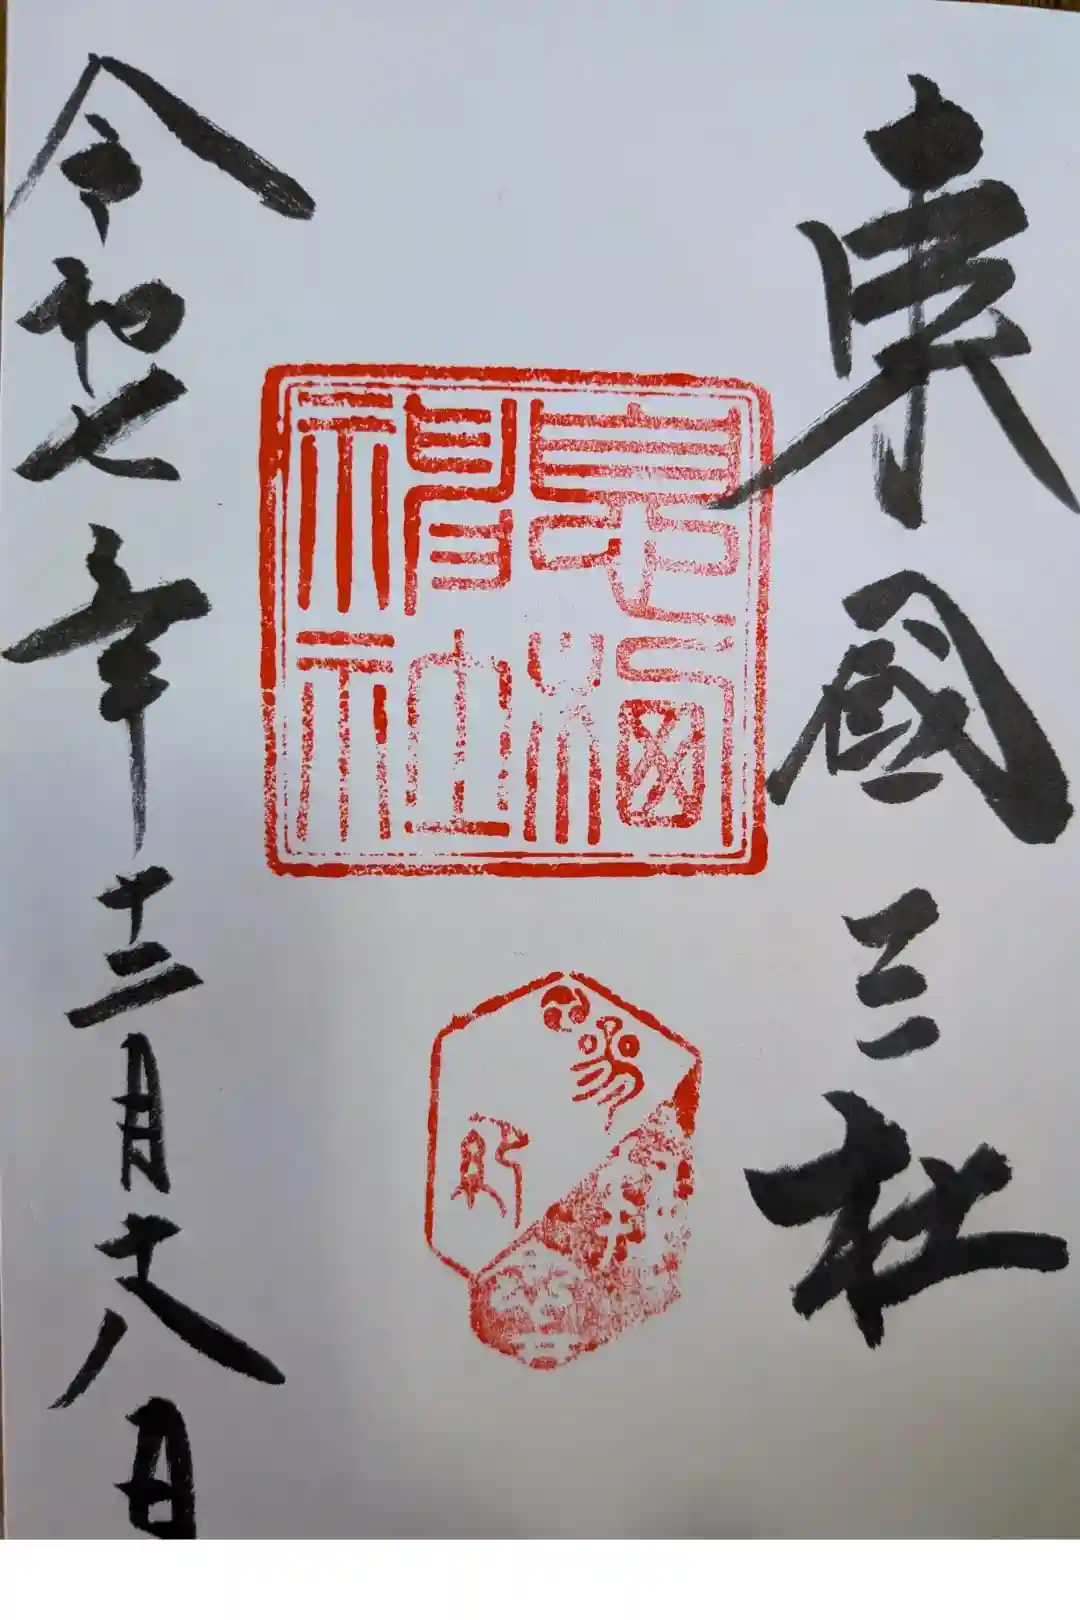 東國三社
息栖
神社
令和七年十二月十八日